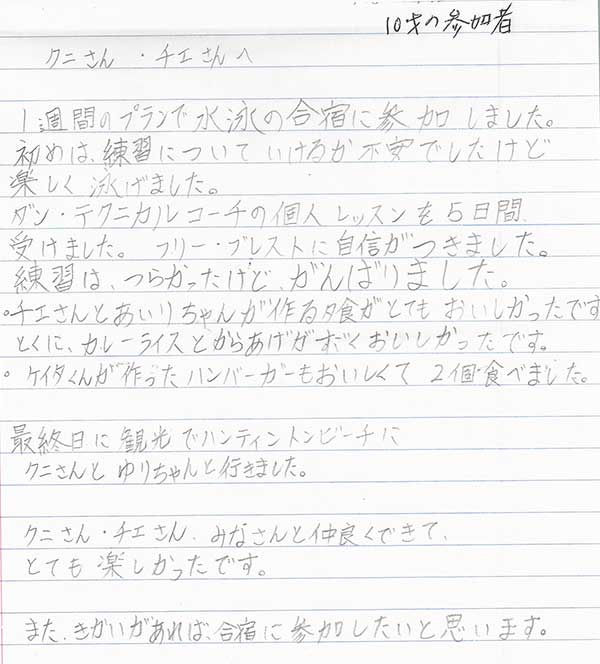 10才の参加者
クニさん・チエさんへ
1週間のプランで水泳の合宿に参加しました。
初めは、練習についていけるか不安でしたけど
楽しく泳げました。
ダン・テクニカルコーチの個人レッスンを5日間、
受けました。フリー・ブレストに自信がつきました。
練習は、つらかったけど、がんばりました。
。チエさんとあいりちゃんが作る夕食がとてもおいしかったです
とくに、カレーライスとからあげがすごくおいしかったです。
。ケイタくんが作ったハンバーガーもおいしくて2個食べました。
最終日に観光でハンティントンビーチに
クニさんとゆりちゃんと行きました。
クニさん・チエさん、みなさんと仲良くできて、
とても楽しかったです。
また、きかいがあれば、合宿に参加したいと思います。